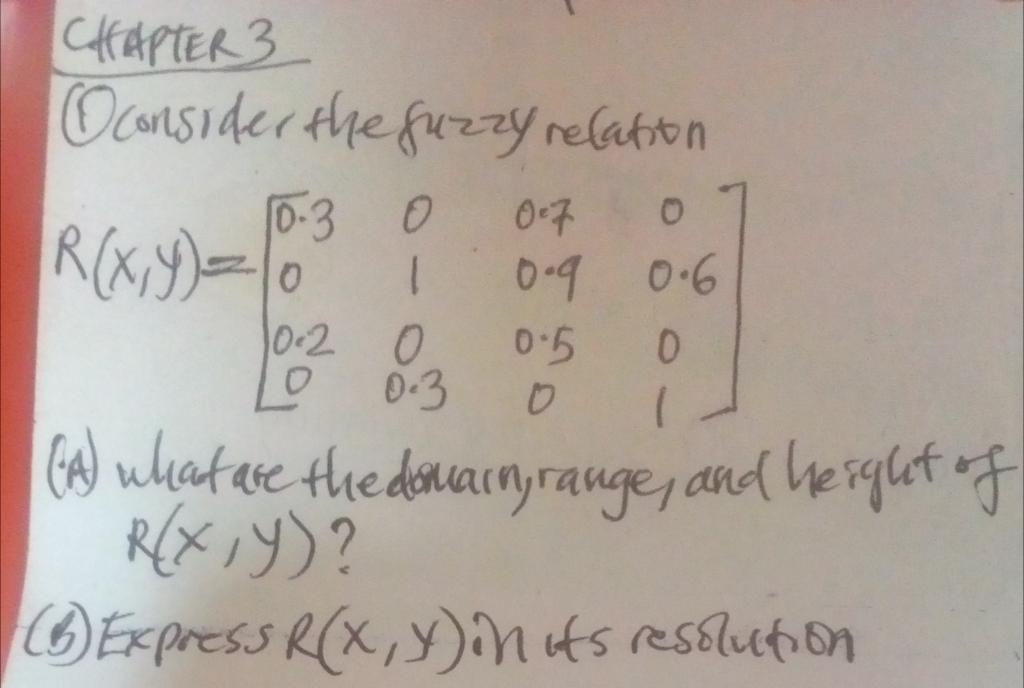 CHAPTER 3
① consider the fuzzy relation
R(X,Y)=
0.3 0 0.7 0
0 1 0.9 0.6
0.2 0 0.5 0
0 0.3 0 1
(A) what are the domain, range, and height of
R(X,Y)?
(B) Express R(X,Y) in its resolution